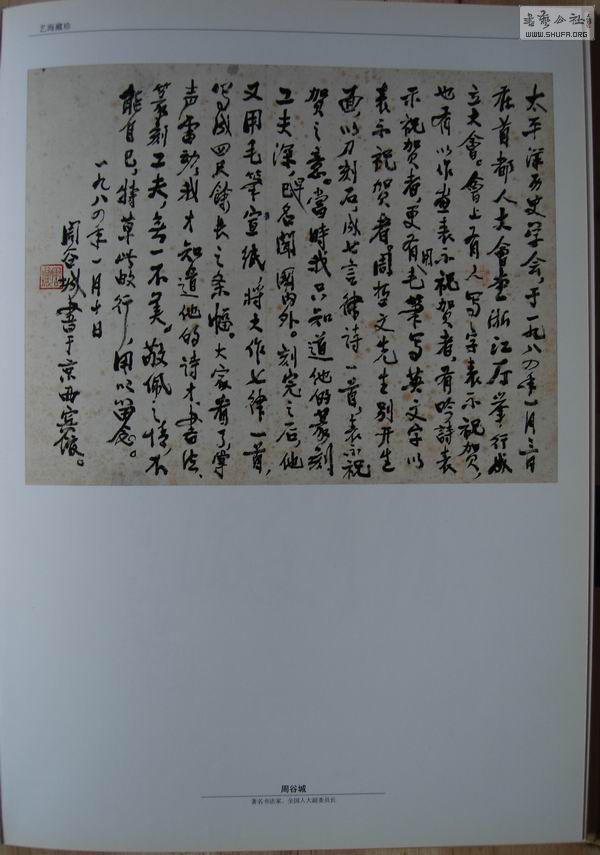 书艺公社
WWW.SHUFA.ORG
艺海藏珍
太平洋历史学会,于一九八四年一月三日
在首都人大会堂浙江厅举行成
立大會。會上有人写字表示祝贺,
也有以作画表示祝贺者,有吟詩表
示祝贺者,更有用毛筆写英文字以
表示祝贺者。周哲文先生别开生
面,以刀刻石成七言律诗一首,表示祝
贺之意。當時我只知道他的篆刻
工夫深,早已名聞國内外。刻完之后,他
又用毛筆宣纸将大作七律一首,
写成四尺餘长之条幅。大家看了,掌
声雷动,我才知道他的诗才、书法、
篆刻工夫,無一不美。敬佩之情,不
能自已,特草此数行,用以留念。
一九八四年一月十日
周谷城书于京西宾馆。
周谷城
著名书法家、全国人大副委员长